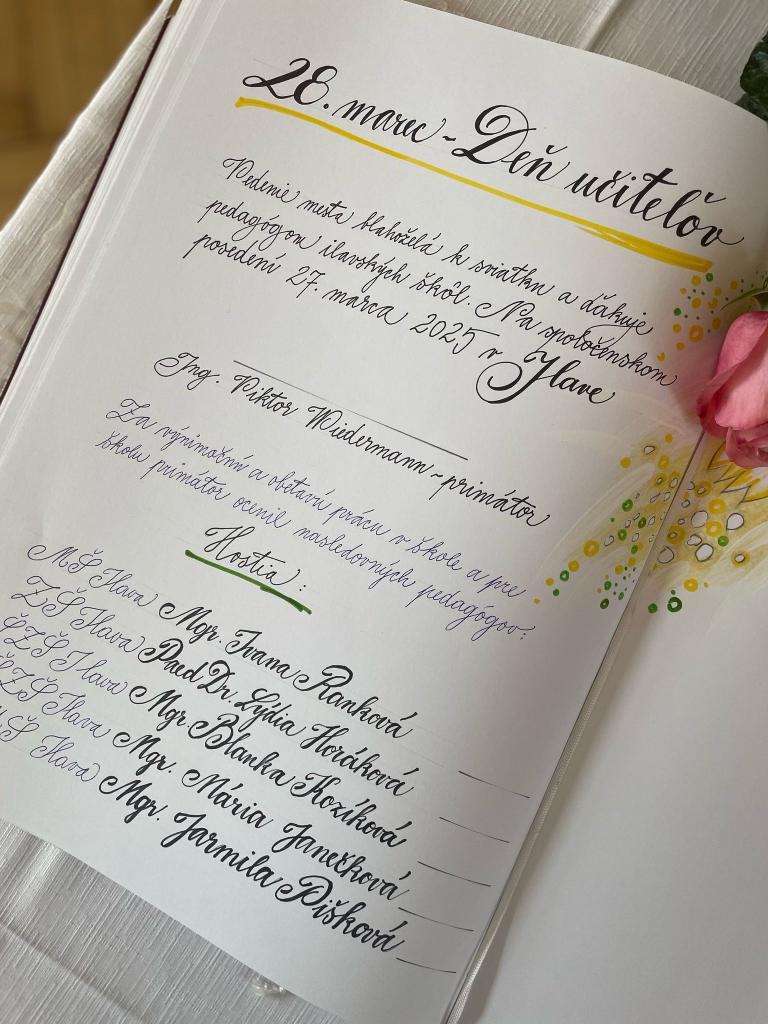 28. marec - Deň učiteľov
Vedenie mesta blahoželá k sviatku a ďakuje
pedagógom ilavských škôl. Na spoločenskom
posedení 27. marca 2025 v Ilave
Ing. Viktor Wiedermann - primátor
Za výnimočnú a obetavú prácu v škole a pre
školu primátor ocenil nasledovných pedagógov:
Hostia:
MŠ Ilava Mgr. Ivana Ranková
ZŠ Ilava PaedDr. Lýdia Horáková
SZŠ Ilava Mgr. Blanka Kozíková
ŠZŠ Ilava Mgr. Mária Janečková
Ilava Mgr. Jarmila Pišková